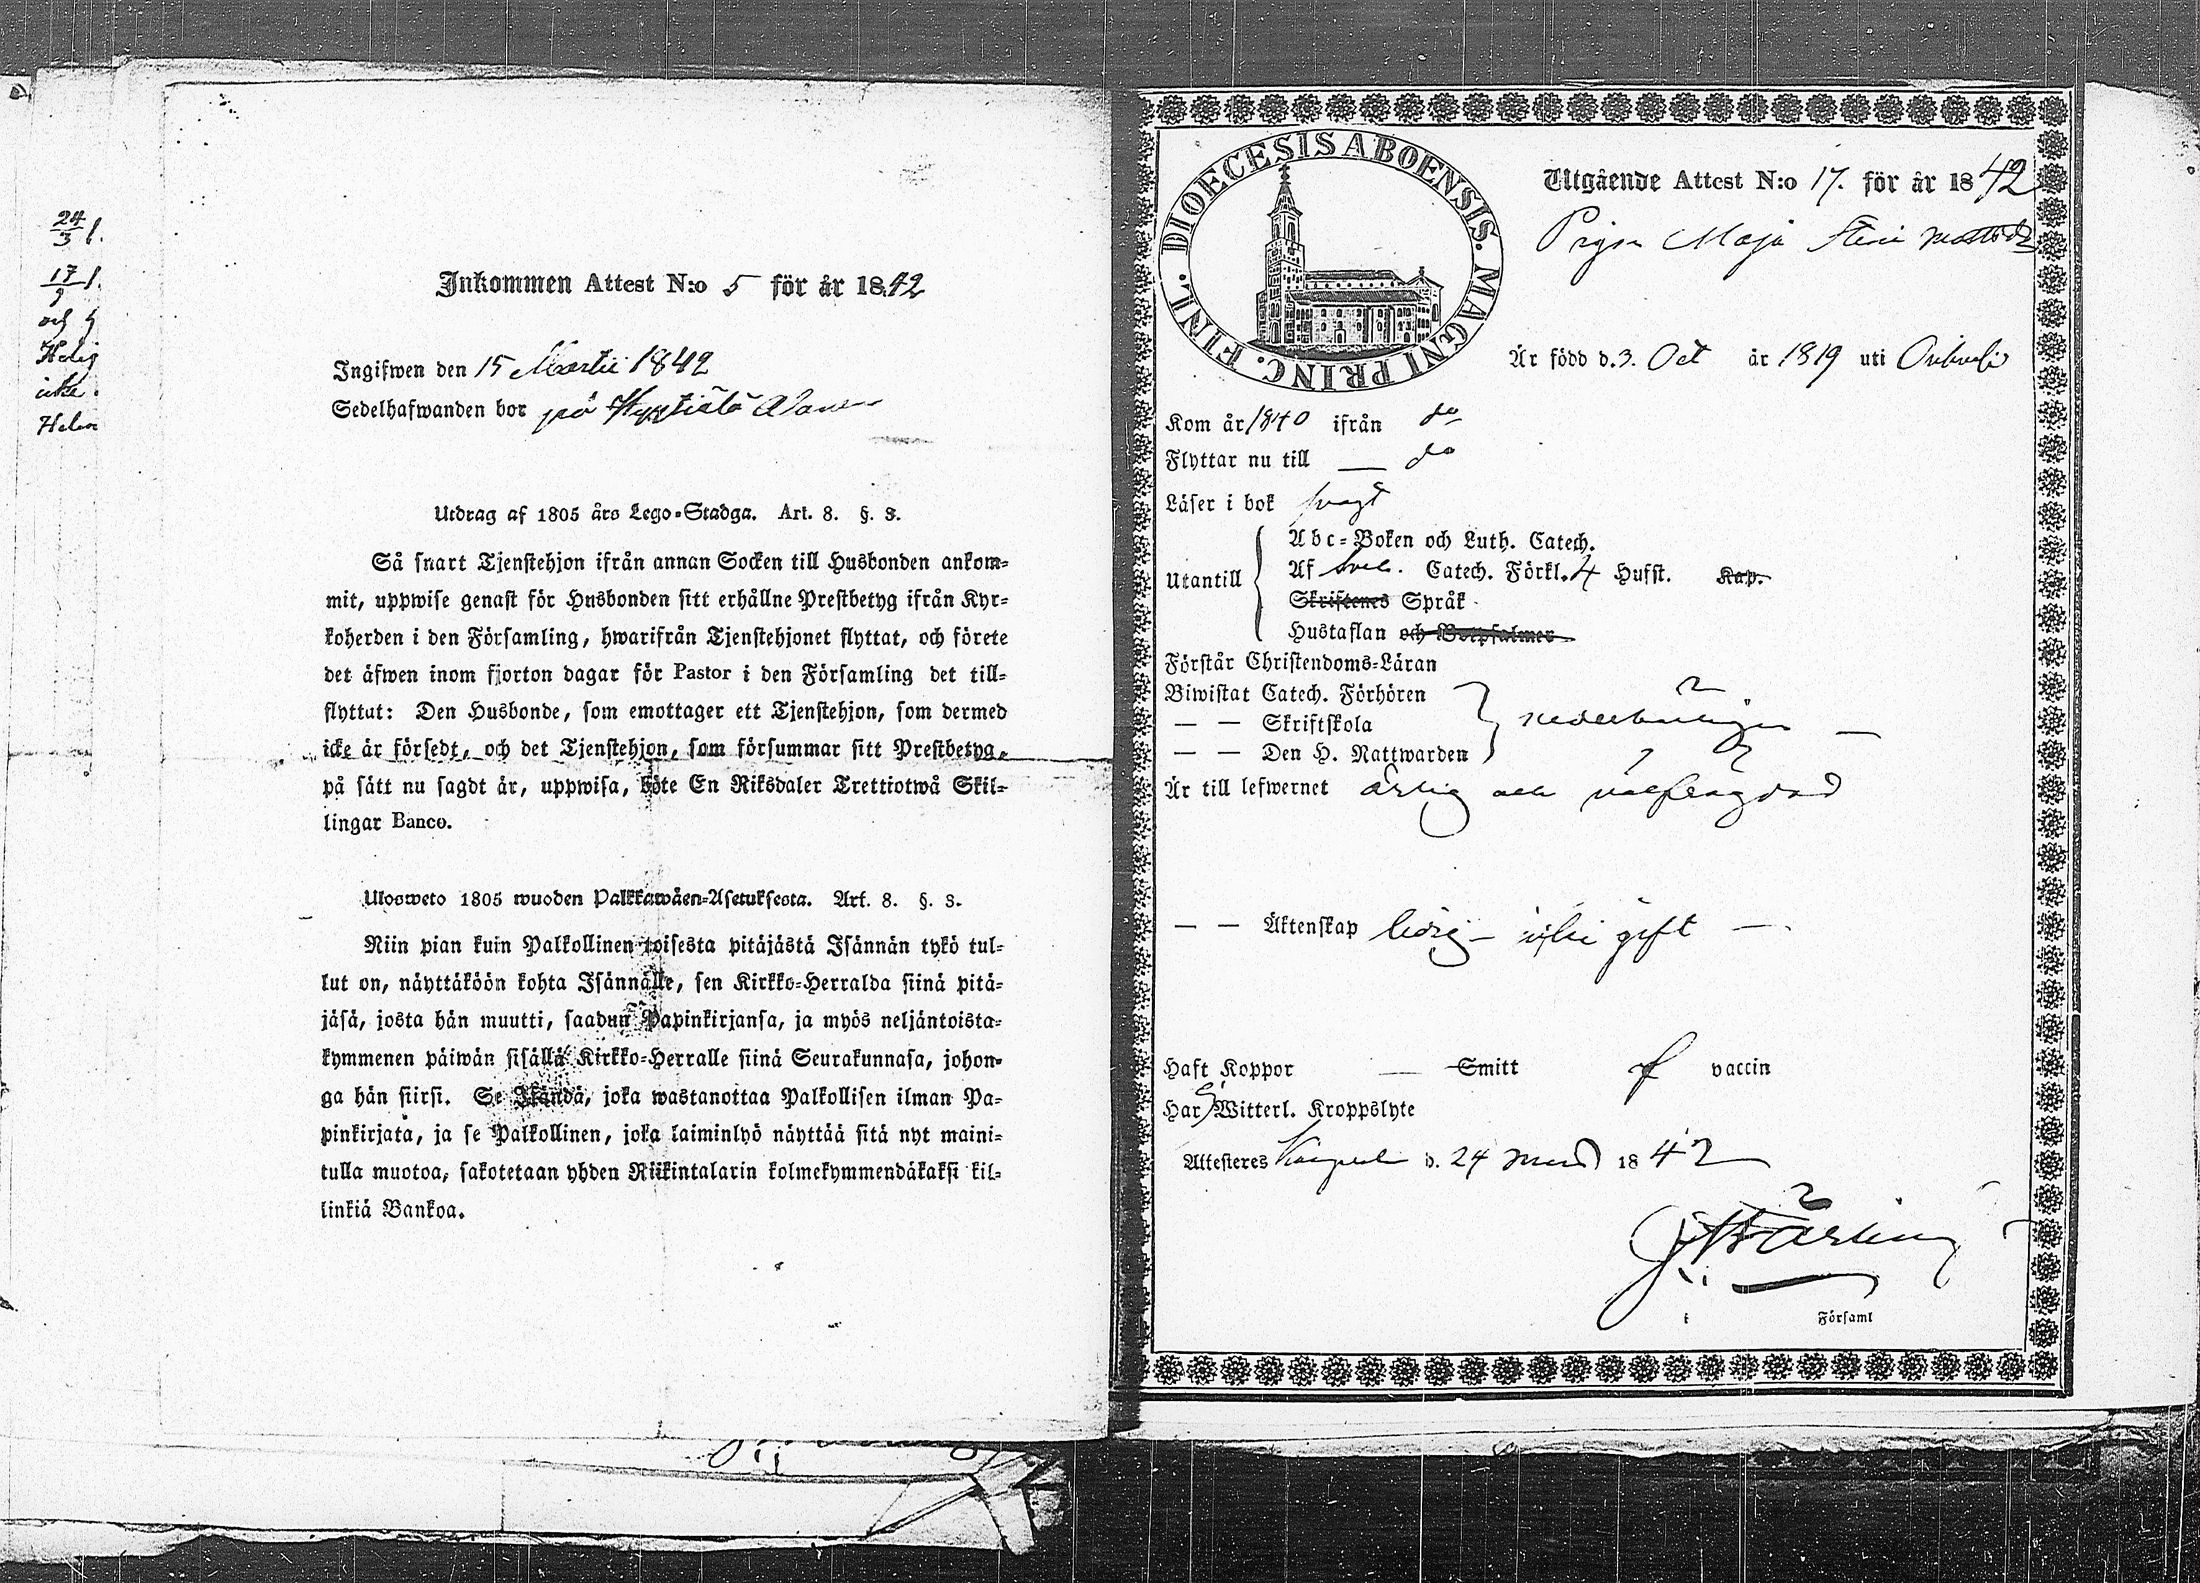 24/3 f.
17/9 f.
och
Helig
icke
Helen
Inkommen Attest N:o 5 för år 1842
Ingifwen den 15 Martii 1842
Sedelhafwanden bor på
Utdrag af 1805 års Lego-Stadga. Art. 8. §. 3.
Så snart Tjenstehjon ifrån annan Socken till Husbonden ankom-
mit, uppwise genast för Husbonden sitt erhållne Prestbetyg ifrån Kyr-
koherden i den Församling, hwarifrån Tjenstehjonet flyttat, och förete
det äfwen inom fjorton dagar för Pastor i den Församling det till-
flyttat: Den Husbonde, som emottager ett Tjenstehjon, som dermed
icke är försedt, och det Tjenstehjon, som försummar sitt Prestbetyg,
på sätt nu sagdt är, uppwisa, böte En Riksdaler Trettiotwå Skil-
lingar Banco.
Ulosweto 1805 wuoden Palkkawäen-Asetuksesta. Art. 8. §. 3.
Niin pian kuin Palkollinen toisesta pitäjästä Isännän tykö tul-
lut on, näyttäköön kohta Isännälle, sen Kirkko-Herralda siinä pitä-
jäsä, josta hän muutti, saadun Papinkirjansa, ja myös neljäntoista-
kymmenen päiwän sisällä Kirkko-Herralle siinä Seurakunnasa, johon-
ga hän siirsi. Se Isändä, joka wastanottaa Palkollisen ilman Pa-
pinkirjata, ja se Palkollinen, joka laiminlyö näyttää sitä nyt maini-
tulla muotoa, sakotetaan yhden Riikintalarin kolmekymmendäkaksi kil-
linkiä Bankoa.
DIOECESIS ABOENSIS. MAGNI PRINC. FINL.
Utgående Attest N:o 17. för år 1842
Pigan Maja Stina Mattsdr
Är född d. 3. Oct år 1819 uti
Kom år 1840 ifrån do
Flyttar nu till — do
Läser i bok svagt
Utantill
Abc-Boken och Luth. Catech.
Af Sveb. Catech. Förkl. 4 Hufst. Kap.
Skriftenes Språk
Hustaflan och Botpsalmer
Förstår Christendoms-Läran
Biwistat Catech. Förhören
— — Skriftskola
— — Den H. Nattwarden
nederbörligen —
Är till lefwernet ärlig och välfrägdad
— — Äktenskap ledig — icke gift —
Haft Koppor — Smitt af vaccin
Har ej Witterl. Kroppslyte
Attesteres d. 24 Mars 1842
i Församl